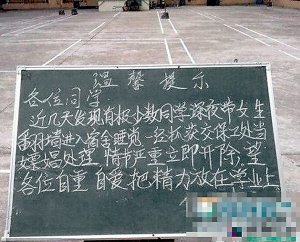 温馨提示
各位同学
近几天发现有极少数同学深夜带女生
翻墙进入宿舍睡觉 一经抓获交保卫处当
嫖娼处理,情节严重立即开除,望
各位自重 自爱把精力放在学业上